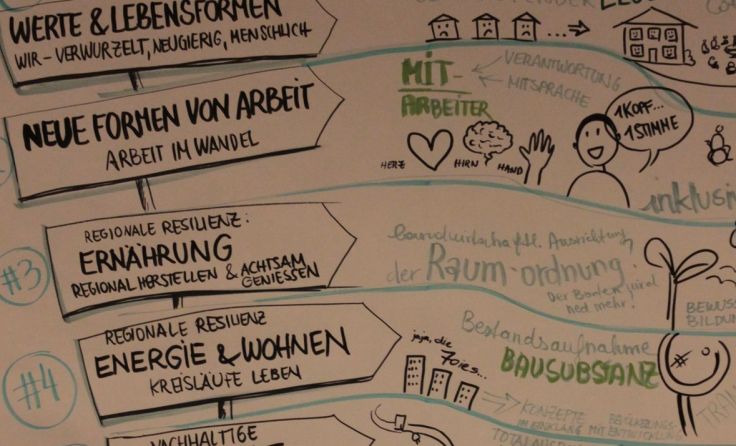 WERTE & LEBENSFORMEN
WIR - VERWURZELT, NEUGIERIG, MENSCHLICH
NEUE FORMEN VON ARBEIT
ARBEIT IM WANDEL
MIT-
ARBEITER
VERANTWORTUNG
MITSPRACHE
HERZ
HIRN
HAND
1 KOPF...
1 STIMME
inklusiv
#3
REGIONALE RESILIENZ:
ERNÄHRUNG
REGIONAL HERSTELLEN & ACHTSAM
GENIESSEN
landwirtschaftl. Ausrichtung
der Raum-ordnung
Der Boden wird
ned mehr!
BEWUSS
BILDUN
#4
REGIONALE RESILIENZ
ENERGIE & WOHNEN
KREISLÄUFE LEBEN
jaja, die
70ies...
Bestandsaufnahme
BAUSUBSTANZ
KONZEPTE
IM EINKLANG MIT BEVÖLKERUNGS-
ENTWICKLUNG
TRAN
NACHHALTIGE